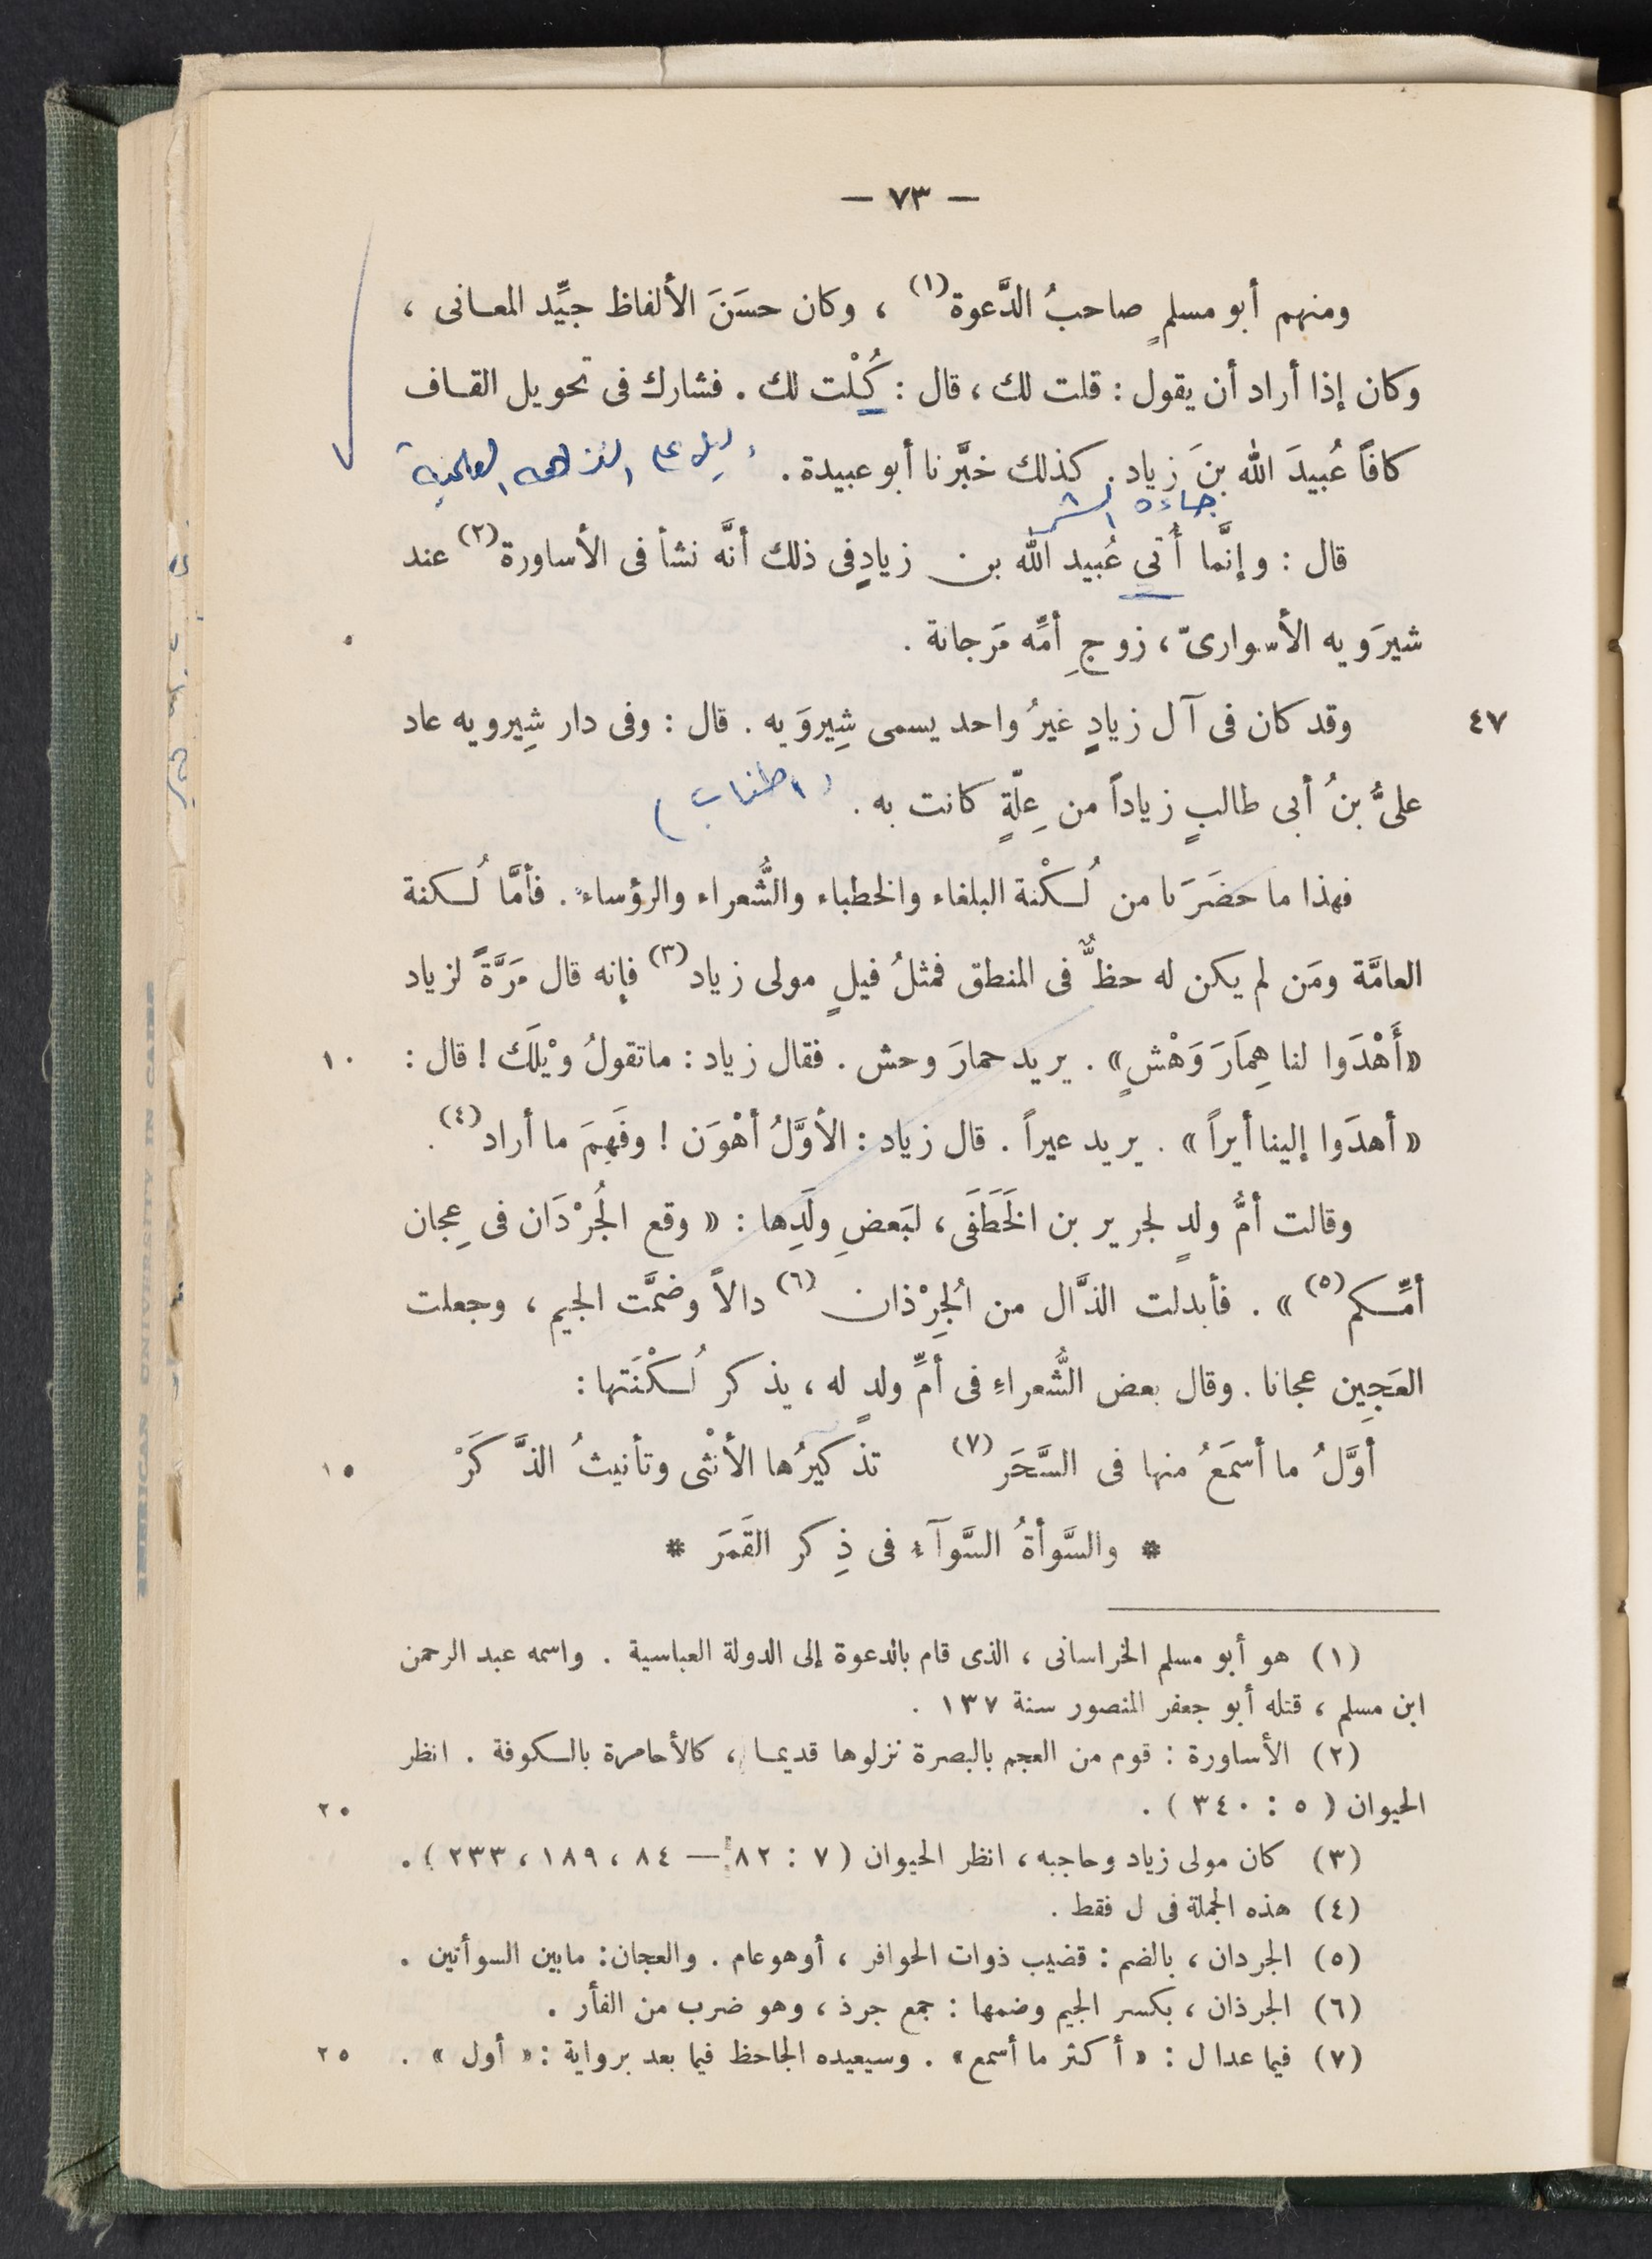 — ٧٣ —
ومنهم أبو مسلمٍ صاحبُ الدَّعوة(١) ، وكان حسَنَ الألفاظ جيِّد المعانى ،
وكان إذا أراد أن يقول : قلت لك ، قال : كُلْت لك . فشارك فى تحويل القاف
كافاً عُبيدَ الله بنَ زياد . كذلك خبَّرنا أبو عبيدة .
قال : وإنَّما أُتى عُبيد الله بن زيادٍ فى ذلك أنَّه نشأ فى الأساورة(٢) عند
شيرَويه الأسوارىّ ، زوجِ أمِّه مَرجانة .
٤٧ وقد كان فى آل زيادٍ غيرُ واحد يسمى شِيروَيه . قال : وفى دار شِيرويه عاد
علىُّ بنُ أبى طالبٍ زياداً من عِلّةٍ كانت به . (اطناب)
فهذا ما حضَرَنا من لُكْنة البلغاء والخطباء والشُّعراء والرؤساء . فأمَّا لُكنة
العامَّة ومَن لم يكن له حظٌّ فى المنطق فمثلُ فيلٍ مولى زياد(٣) فإنه قال مَرَّةً لزياد
«أَهْدَوا لنا هِمَارَ وَهْشٍ» . يريد حمارَ وحش . فقال زياد : ماتقولُ وَيْلَك ! قال : ١٠
« أهدَوا إلينا أيراً » . يريد عيراً . قال زياد : الأوَّلُ أهْوَن ! وفَهِمَ ما أراد(٤) .
وقالت أمُّ ولدٍ لجرير بن الخَطَفَى ، لبَعضِ ولَدِها : « وقع الجُرْدَان فى عِجان
أمِّكم(٥) » . فأبدلت الذَّال من الجُرِذان(٦) دالاً وضمَّت الجيم ، وجعلت
العَجِين عجانا . وقال بعض الشُّعراءِ فى أمِّ ولدٍ له ، يذكر لُكْنَتها :
أوَّلُ ما أسمَعُ منها فى السَّحَر(٧) تذكيرُها الأنْثى وتأنيثُ الذَّكَرْ ١٥
* والسَّوأةُ السَّوآء فى ذِكر القَمَرَ *
(١) هو أبو مسلم الخراسانى ، الذى قام بالدعوة إلى الدولة العباسية . واسمه عبد الرحمن
ابن مسلم ، قتله أبو جعفر المنصور سنة ١٣٧ .
(٢) الأساورة : قوم من العجم بالبصرة نزلوها قديما ، كالأحامرة بالكوفة . انظر
الحيوان ( ٥ : ٣٤٠ ) . ٢٠
(٣) كان مولى زياد وحاجبه ، انظر الحيوان ( ٧ : ٨٢ — ٨٤ ، ١٨٩ ، ٢٣٣ ) .
(٤) هذه الجملة فى ل فقط .
(٥) الجردان ، بالضم : قضيب ذوات الحوافر ، أو هو عام . والعجان : مابين السوأتين .
(٦) الجرذان ، بكسر الجيم وضمها : جمع جرذ ، وهو ضرب من الفأر .
(٧) فيما عدا ل : « أكثر ما أسمع » . وسيعيده الجاحظ فيما بعد برواية : « أول » . ٢٥